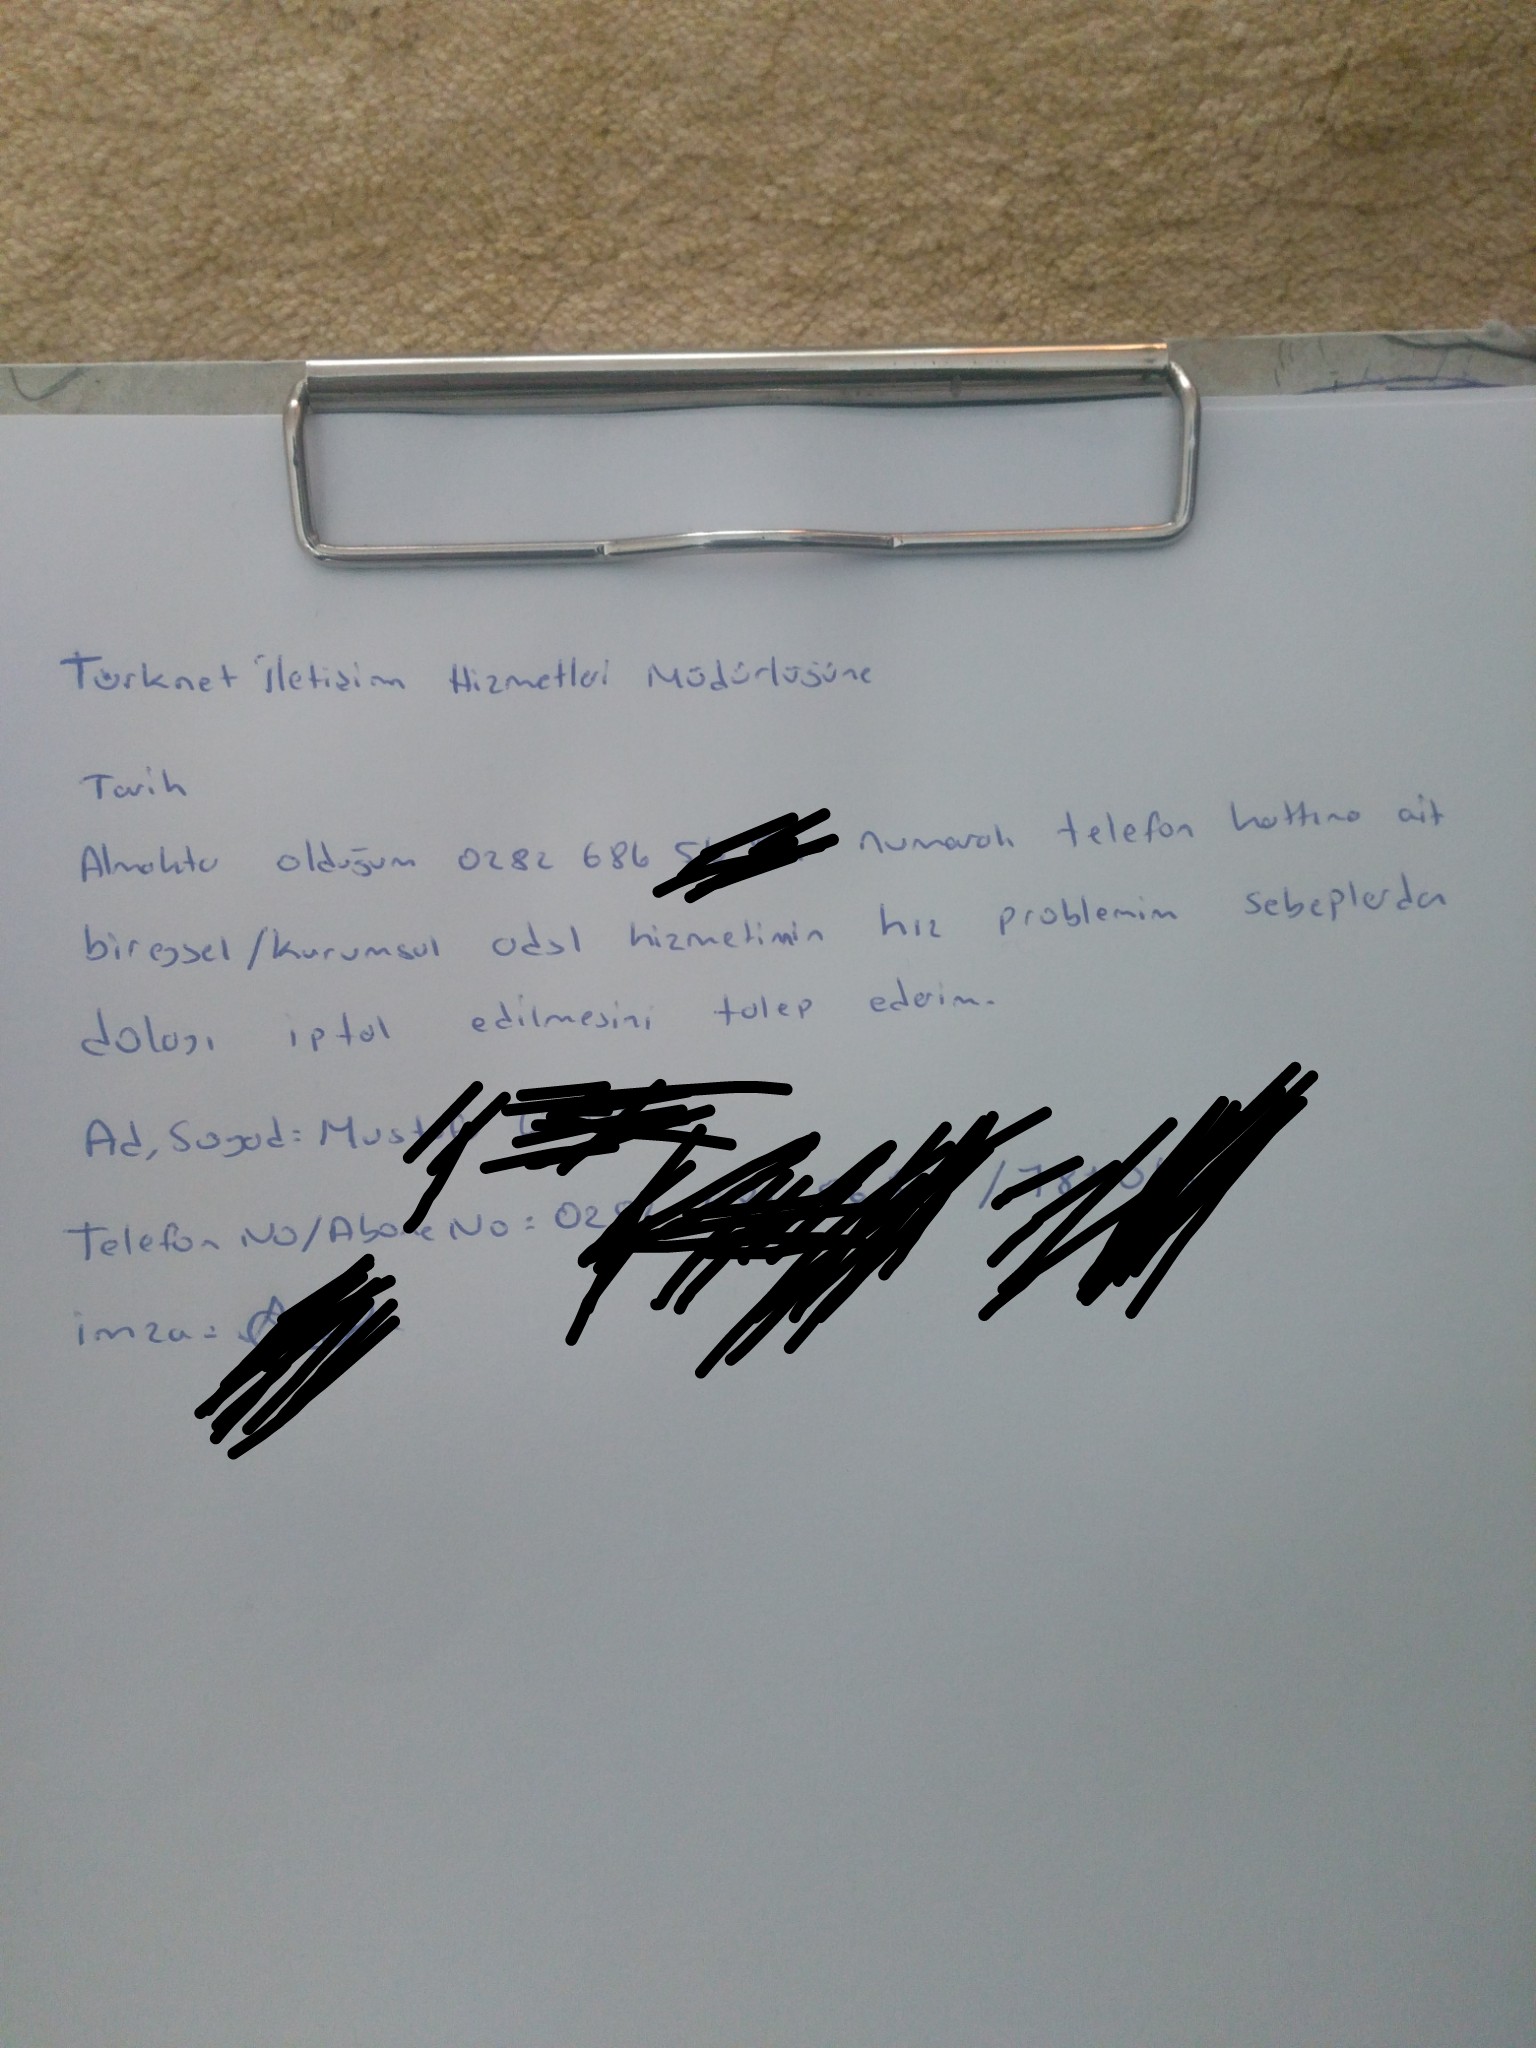 Türknet İletişim Hizmetleri Müdürlüğüne
Tarih
Almakta olduğum 0282 686 numaralı telefon hattına ait
bireysel/kurumsal adsl hizmetimin hız problemim sebeplerden
dolayı iptal edilmesini talep ederim.
Ad, Soyad:
Telefon No/Abone No:
imza: